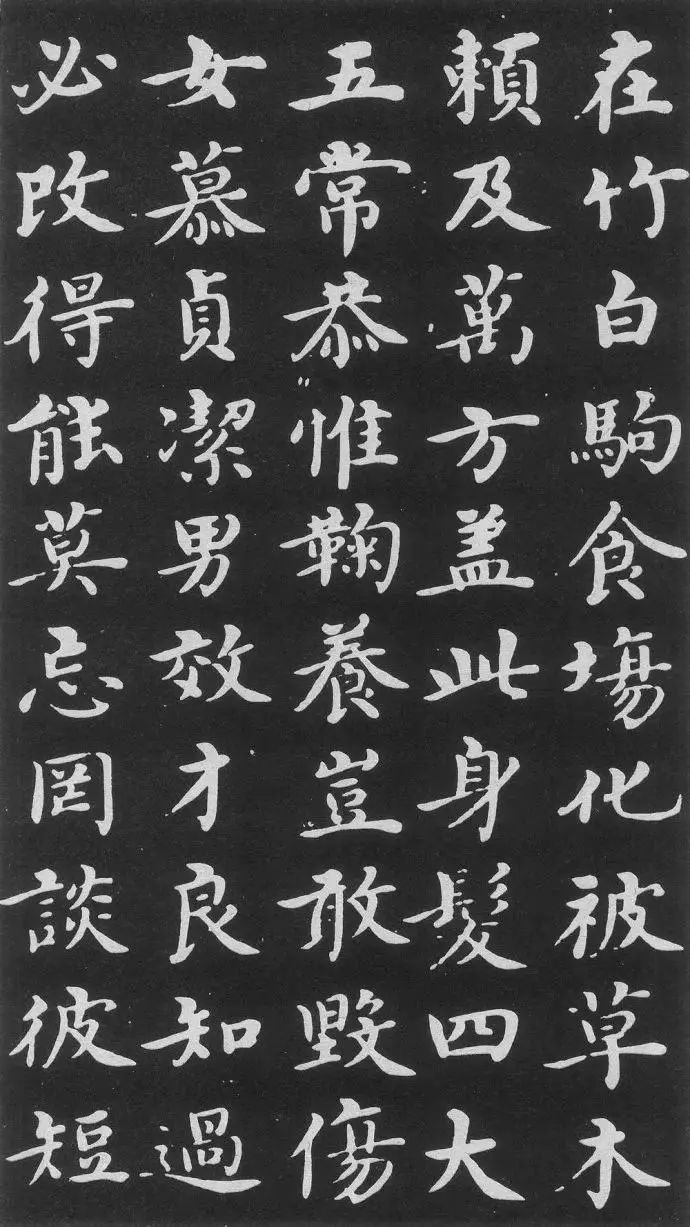 在竹白駒食場化被草木
賴及萬方盖此身髮四大
五常恭惟鞠養豈敢毀傷
女慕貞潔男效才良知過
必改得能莫忘罔談彼短